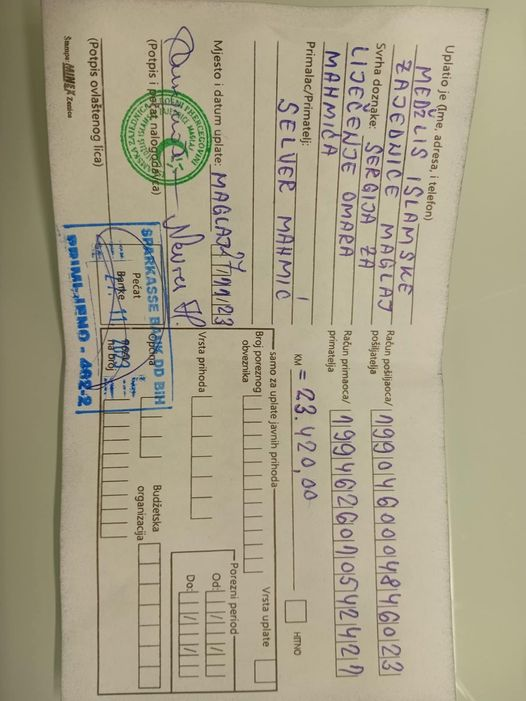 Uplatio je (Ime, adresa, i telefon)
MEDŽLIS ISLAMSKE
ZAJEDNICE MAGLAJ
Svrha doznake: SERGIJA ZA
LIJEČENJE OMARA
MAHMIĆA
Primalac/Primatelj:
SELVER MAHMIĆ
Mjesto i datum uplate: MAGLAJ 27/11/23
(Potpis i pečat nalogodavca)
(Potpis ovlaštenog lica)
Štampa: MINEX Zenica
Račun pošiljaoca/
pošiljatelja
1990460004846023
Račun primaoca/
primatelja
1994626010542421
KM = 23.420,00
HITNO
samo za uplate javnih prihoda
Broj poreznog
obveznika
Vrsta uplate
Vrsta prihoda
Porezni period
Od:
Do:
Općina
Budžetska
organizacija
na broj
Pečat
Banke
SPARKASSE BANK DD BiH
11 2023
PRIMLJENO - 462-2